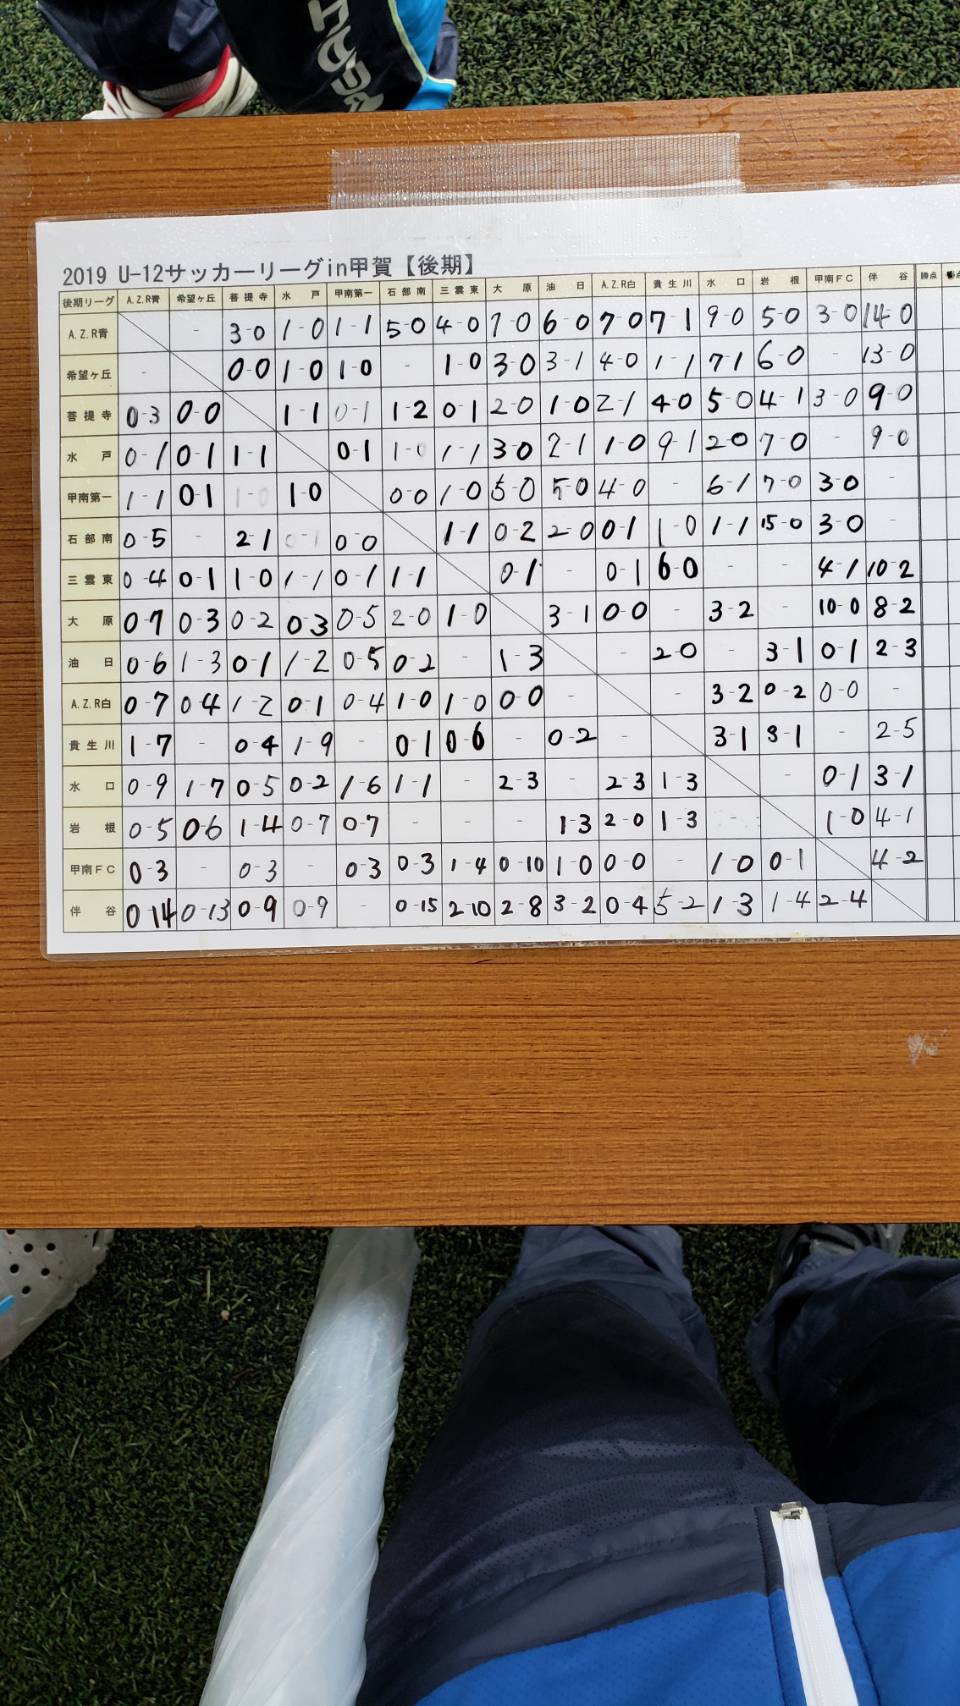 2019 U-12サッカーリーグin甲賀【後期】
後期リーグ A.Z.R青 希望ヶ丘 菩提寺 水戸 甲南第一 石部南 三雲東 大原 油日 A.Z.R白 貴生川 水口 岩根 甲南FC 伴谷 勝点
A.Z.R青 - 3-0 1-0 1-1 5-0 4-0 7-0 6-0 7-0 7-1 9-0 5-0 3-0 14-0
希望ヶ丘 - 0-0 1-0 1-0 - 1-0 3-0 3-1 4-0 1-1 7-1 6-0 - 13-0
菩提寺 0-3 0-0 1-1 0-1 1-2 0-1 2-0 1-0 2-1 4-0 5-0 4-1 3-0 9-0
水戸 0-1 0-1 1-1 0-1 1-0 1-1 3-0 2-1 1-0 9-1 2-0 7-0 - 9-0
甲南第一 1-1 0-1 1-0 1-0 0-0 1-0 5-0 5-0 4-0 - 6-1 7-0 3-0 -
石部南 0-5 - 2-1 0-1 0-0 1-1 0-2 2-0 0-1 1-0 1-1 15-0 3-0 -
三雲東 0-4 0-1 1-0 1-1 0-1 1-1 0-1 - 0-1 6-0 - - 4-1 10-2
大原 0-7 0-3 0-2 0-3 0-5 2-0 1-0 3-1 0-0 - 3-2 - 10-0 8-2
油日 0-6 1-3 0-1 1-2 0-5 0-2 - 1-3 - 2-0 - 3-1 0-1 2-3
A.Z.R白 0-7 0-4 1-2 0-1 0-4 1-0 1-0 0-0 - - 3-2 0-2 0-0 -
貴生川 1-7 - 0-4 1-9 - 0-1 0-6 - 0-2 - 3-1 3-1 - 2-5
水口 0-9 1-7 0-5 0-2 1-6 1-1 - 2-3 - 2-3 1-3 - 0-1 3-1
岩根 0-5 0-6 1-4 0-7 0-7 - - - 1-3 2-0 1-3 - 1-0 4-1
甲南FC 0-3 - 0-3 - 0-3 0-3 1-4 0-10 1-0 0-0 - 1-0 0-1 4-2
伴谷 0-14 0-13 0-9 0-9 - 0-15 2-10 2-8 3-2 0-4 5-2 1-3 1-4 2-4